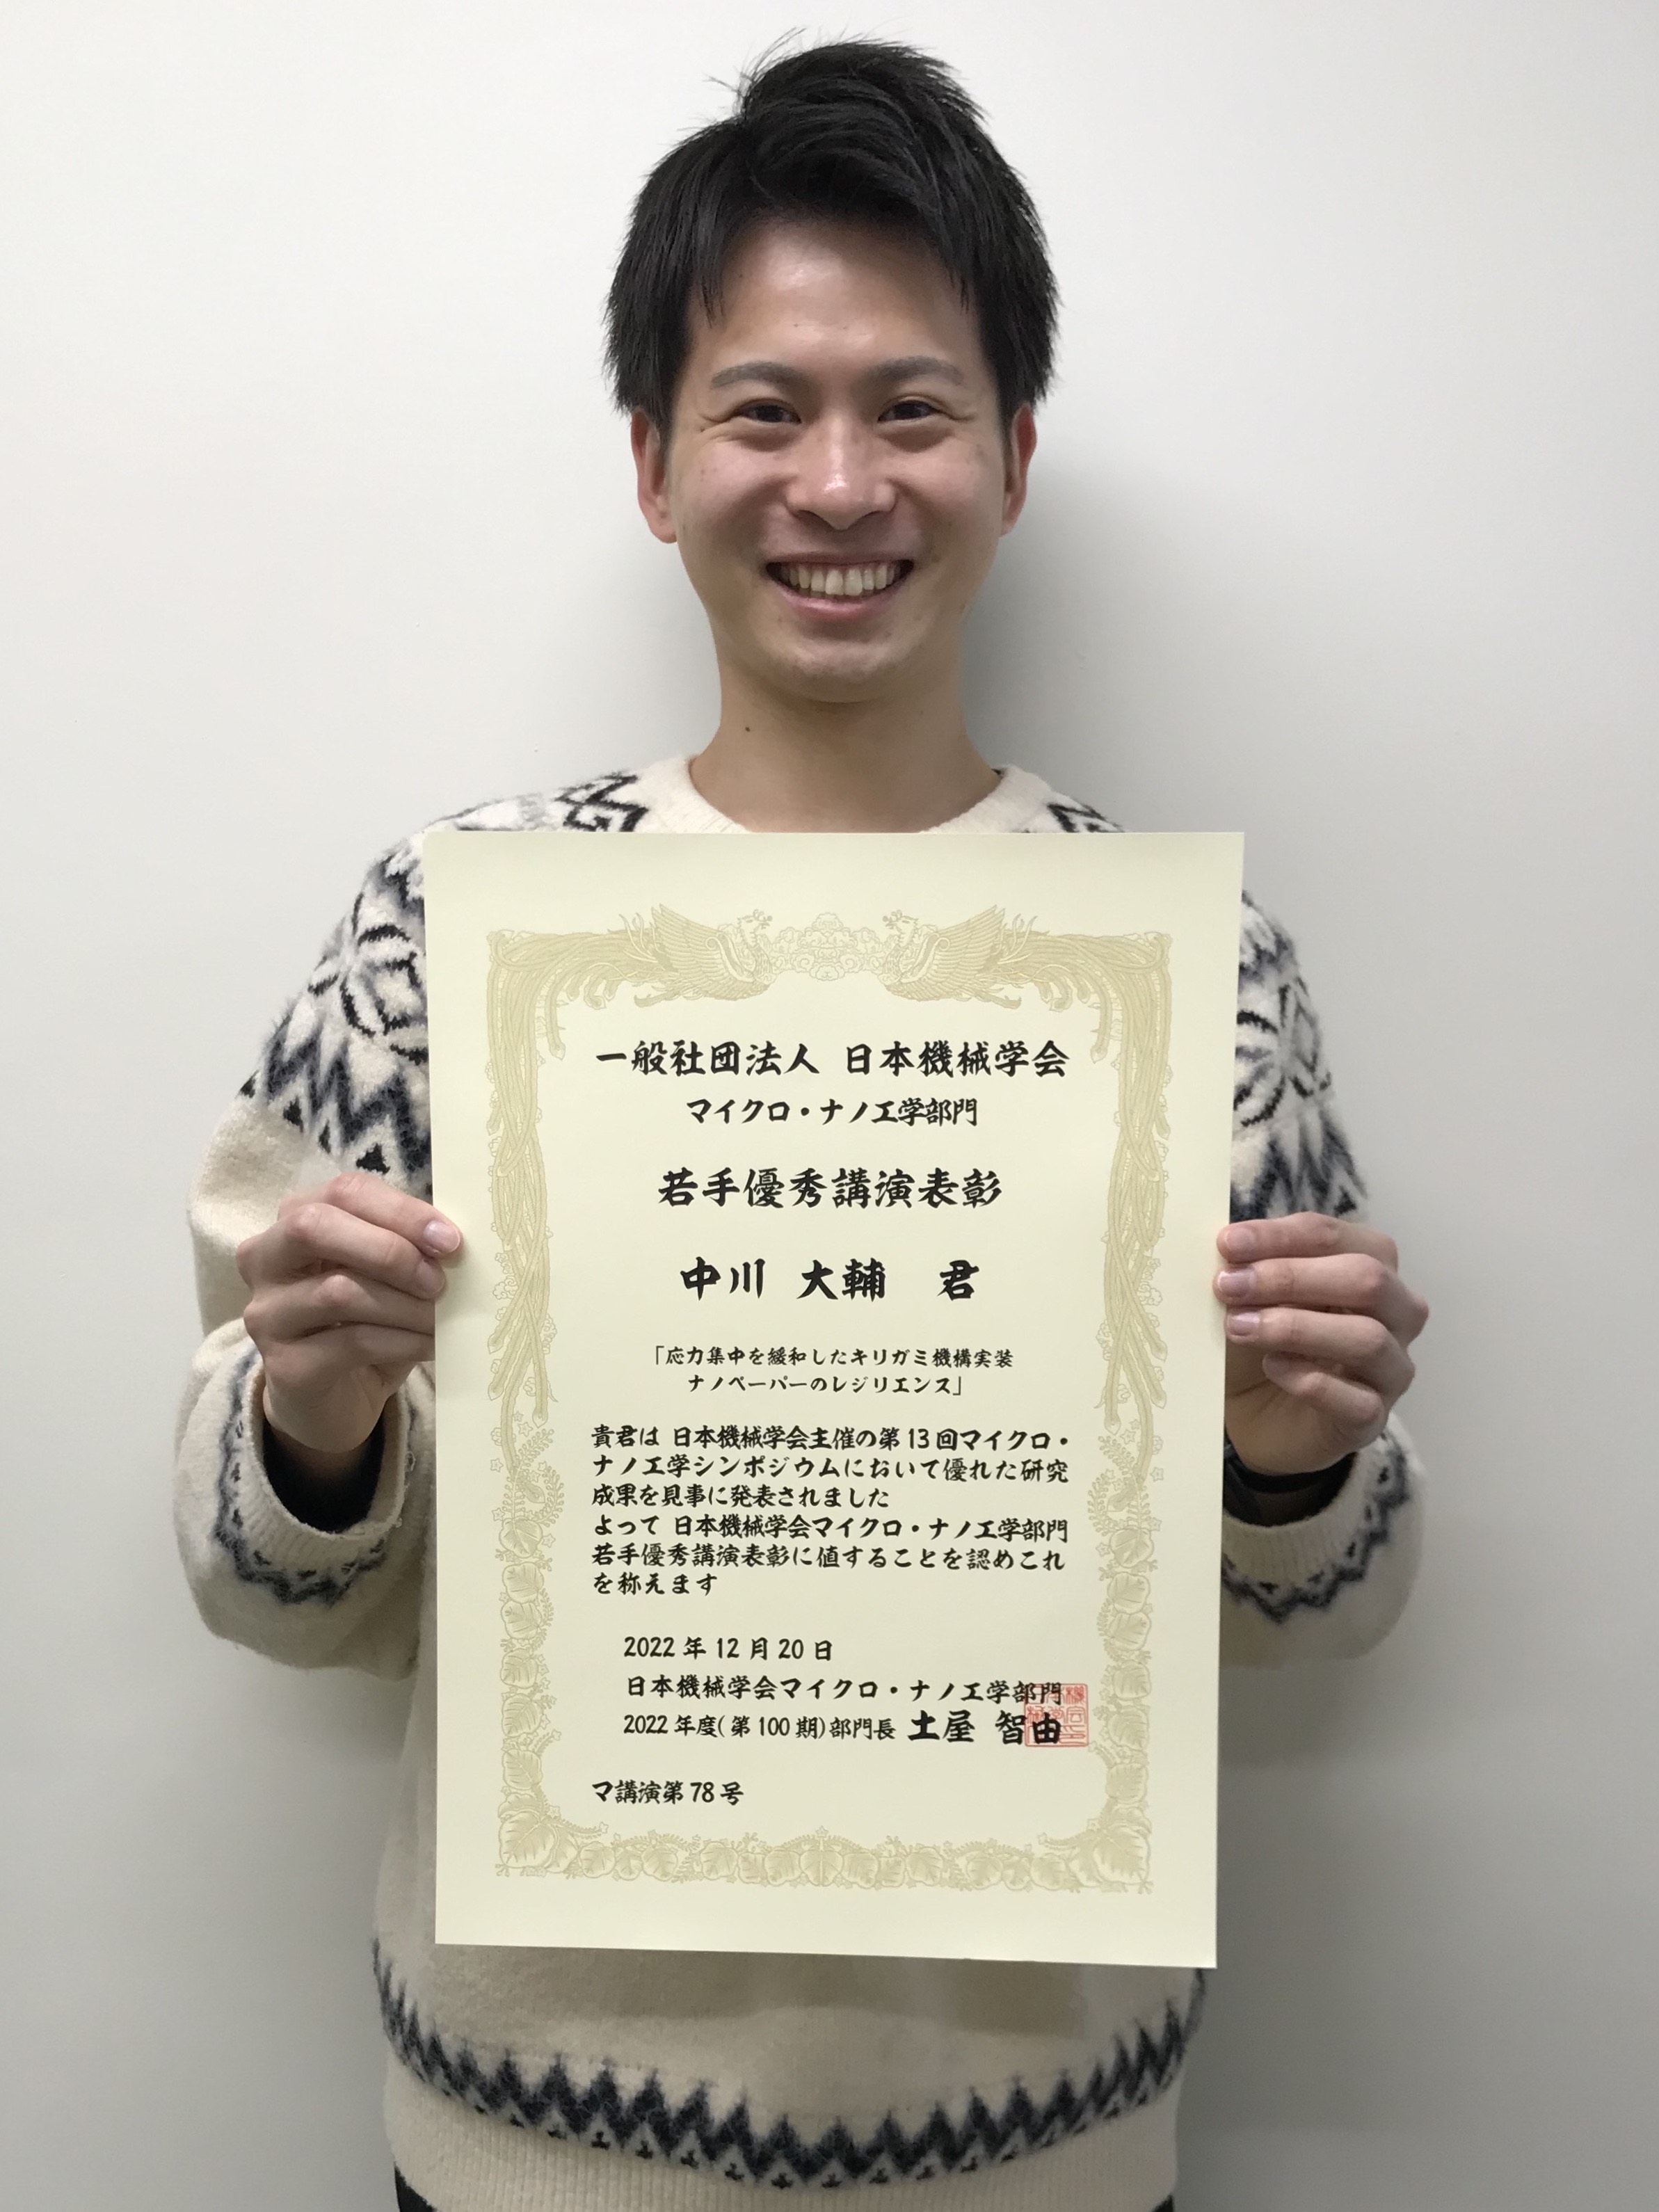 一般社団法人 日本機械学会
マイクロ・ナノ工学部門
若手優秀講演表彰
中川 大輔 君
「応力集中を緩和したキリガミ機構実装
ナノペーパーのレジリエンス」
貴君は 日本機械学会主催の第13回マイクロ・
ナノ工学シンポジウムにおいて優れた研究
成果を見事に発表されました
よって 日本機械学会マイクロ・ナノ工学部門
若手優秀講演表彰に値することを認めこれ
を称えます
2022年12月20日
日本機械学会マイクロ・ナノ工学部門
2022年度(第100期)部門長 土屋 智由
マ講演第78号